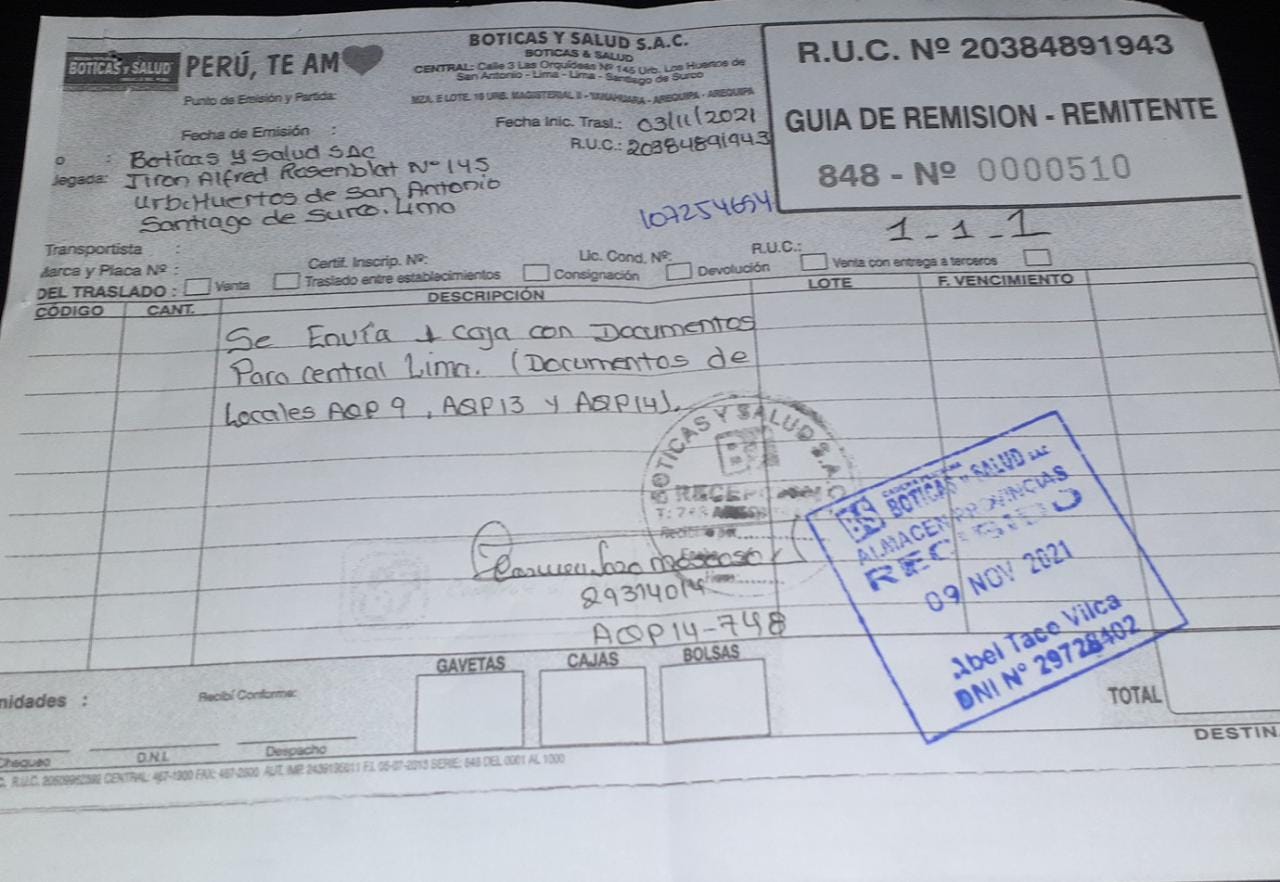 BOTICAS Y SALUD
PERÚ, TE AM
BOTICAS Y SALUD S.A.C.
BOTICAS & SALUD
CENTRAL: Calle 3 Las Orquideas Nº 145 Urb. Los Huertos de
San Antonio - Lima - Lima - Santiago de Surco
MZA. E LOTE. 16 URB. MAGISTERIAL II - YANAHUARA - AREQUIPA - AREQUIPA
R.U.C. Nº 20384891943
GUIA DE REMISION - REMITENTE
848 - Nº 0000510
Punto de Emisión y Partida:
Fecha de Emisión :
Fecha Inic. Trasl.: 03/11/2021
R.U.C.: 20384891943
o : Boticas y Salud SAC
legada: Jiron Alfred Rosenblat Nº 145
Urb. Huertos de San Antonio
Santiago de Surco. Lima
107254694
1 - 1 - 1
Transportista :
Marca y Placa Nº :
Certif. Inscrip. Nº:
Lic. Cond. Nº:
R.U.C.:
DEL TRASLADO : Venta Traslado entre establecimientos Consignación Devolución Venta con entrega a terceros
CÓDIGO CANT. DESCRIPCIÓN LOTE F. VENCIMIENTO
Se Envía 1 Caja con Documentos
Para central Lima. (Documentos de
Locales AQP 9, AQP13 y AQP14).
BOTICAS Y SALUD S.A.C.
29314014
AQP14-748
BOTICAS Y SALUD SAC
ALMACEN PROVINCIAS
RECIBIDO
09 NOV 2021
Abel Taco Vilca
DNI Nº 29728402
GAVETAS CAJAS BOLSAS
nidades :
Recibí Conforme:
TOTAL
Chequeo D.N.I. Despacho
DESTIN